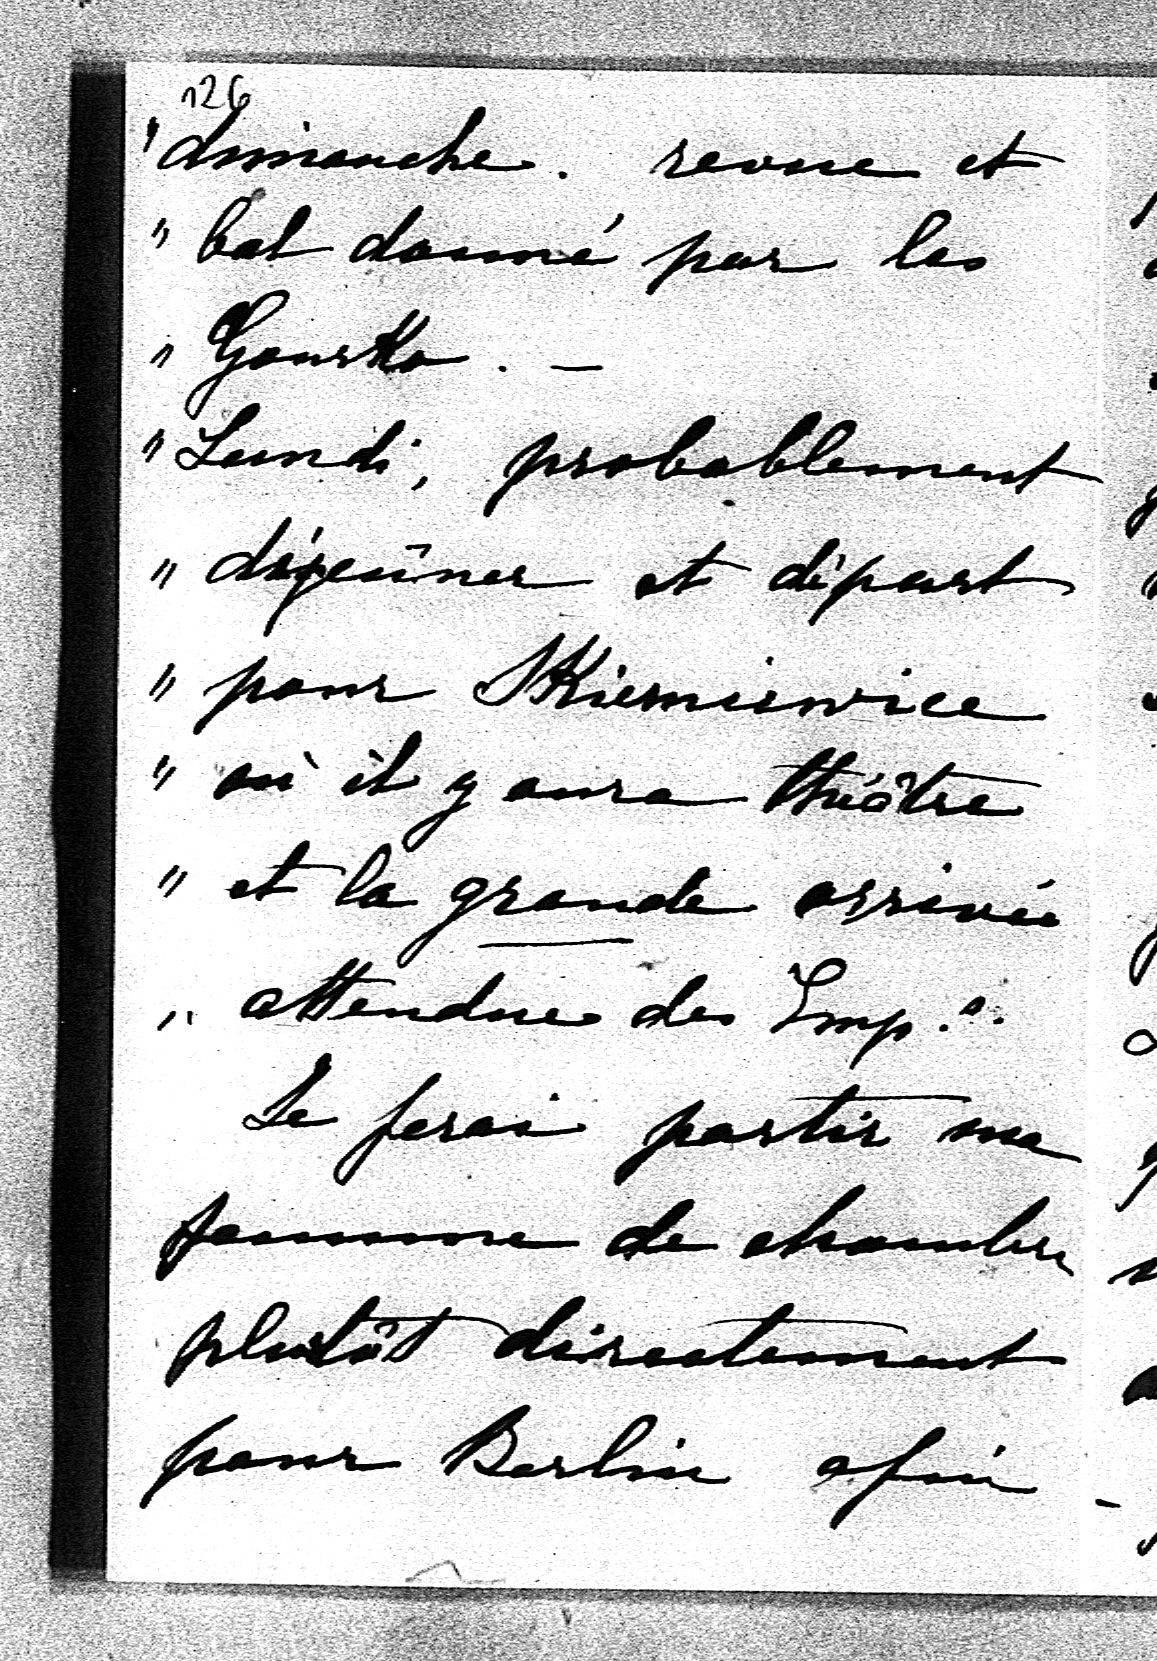 126
" dimanche. revue et
" bal donné par les
" Gourko. —
" Lundi, probablement
" déjeûner et départ
" pour SKierniewice
" où il y aura théâtre
" et la grande arrivée
" attendue des Imp.".
Je ferai partir ma
femme de chambre
plutôt directement
pour Berlin afin -